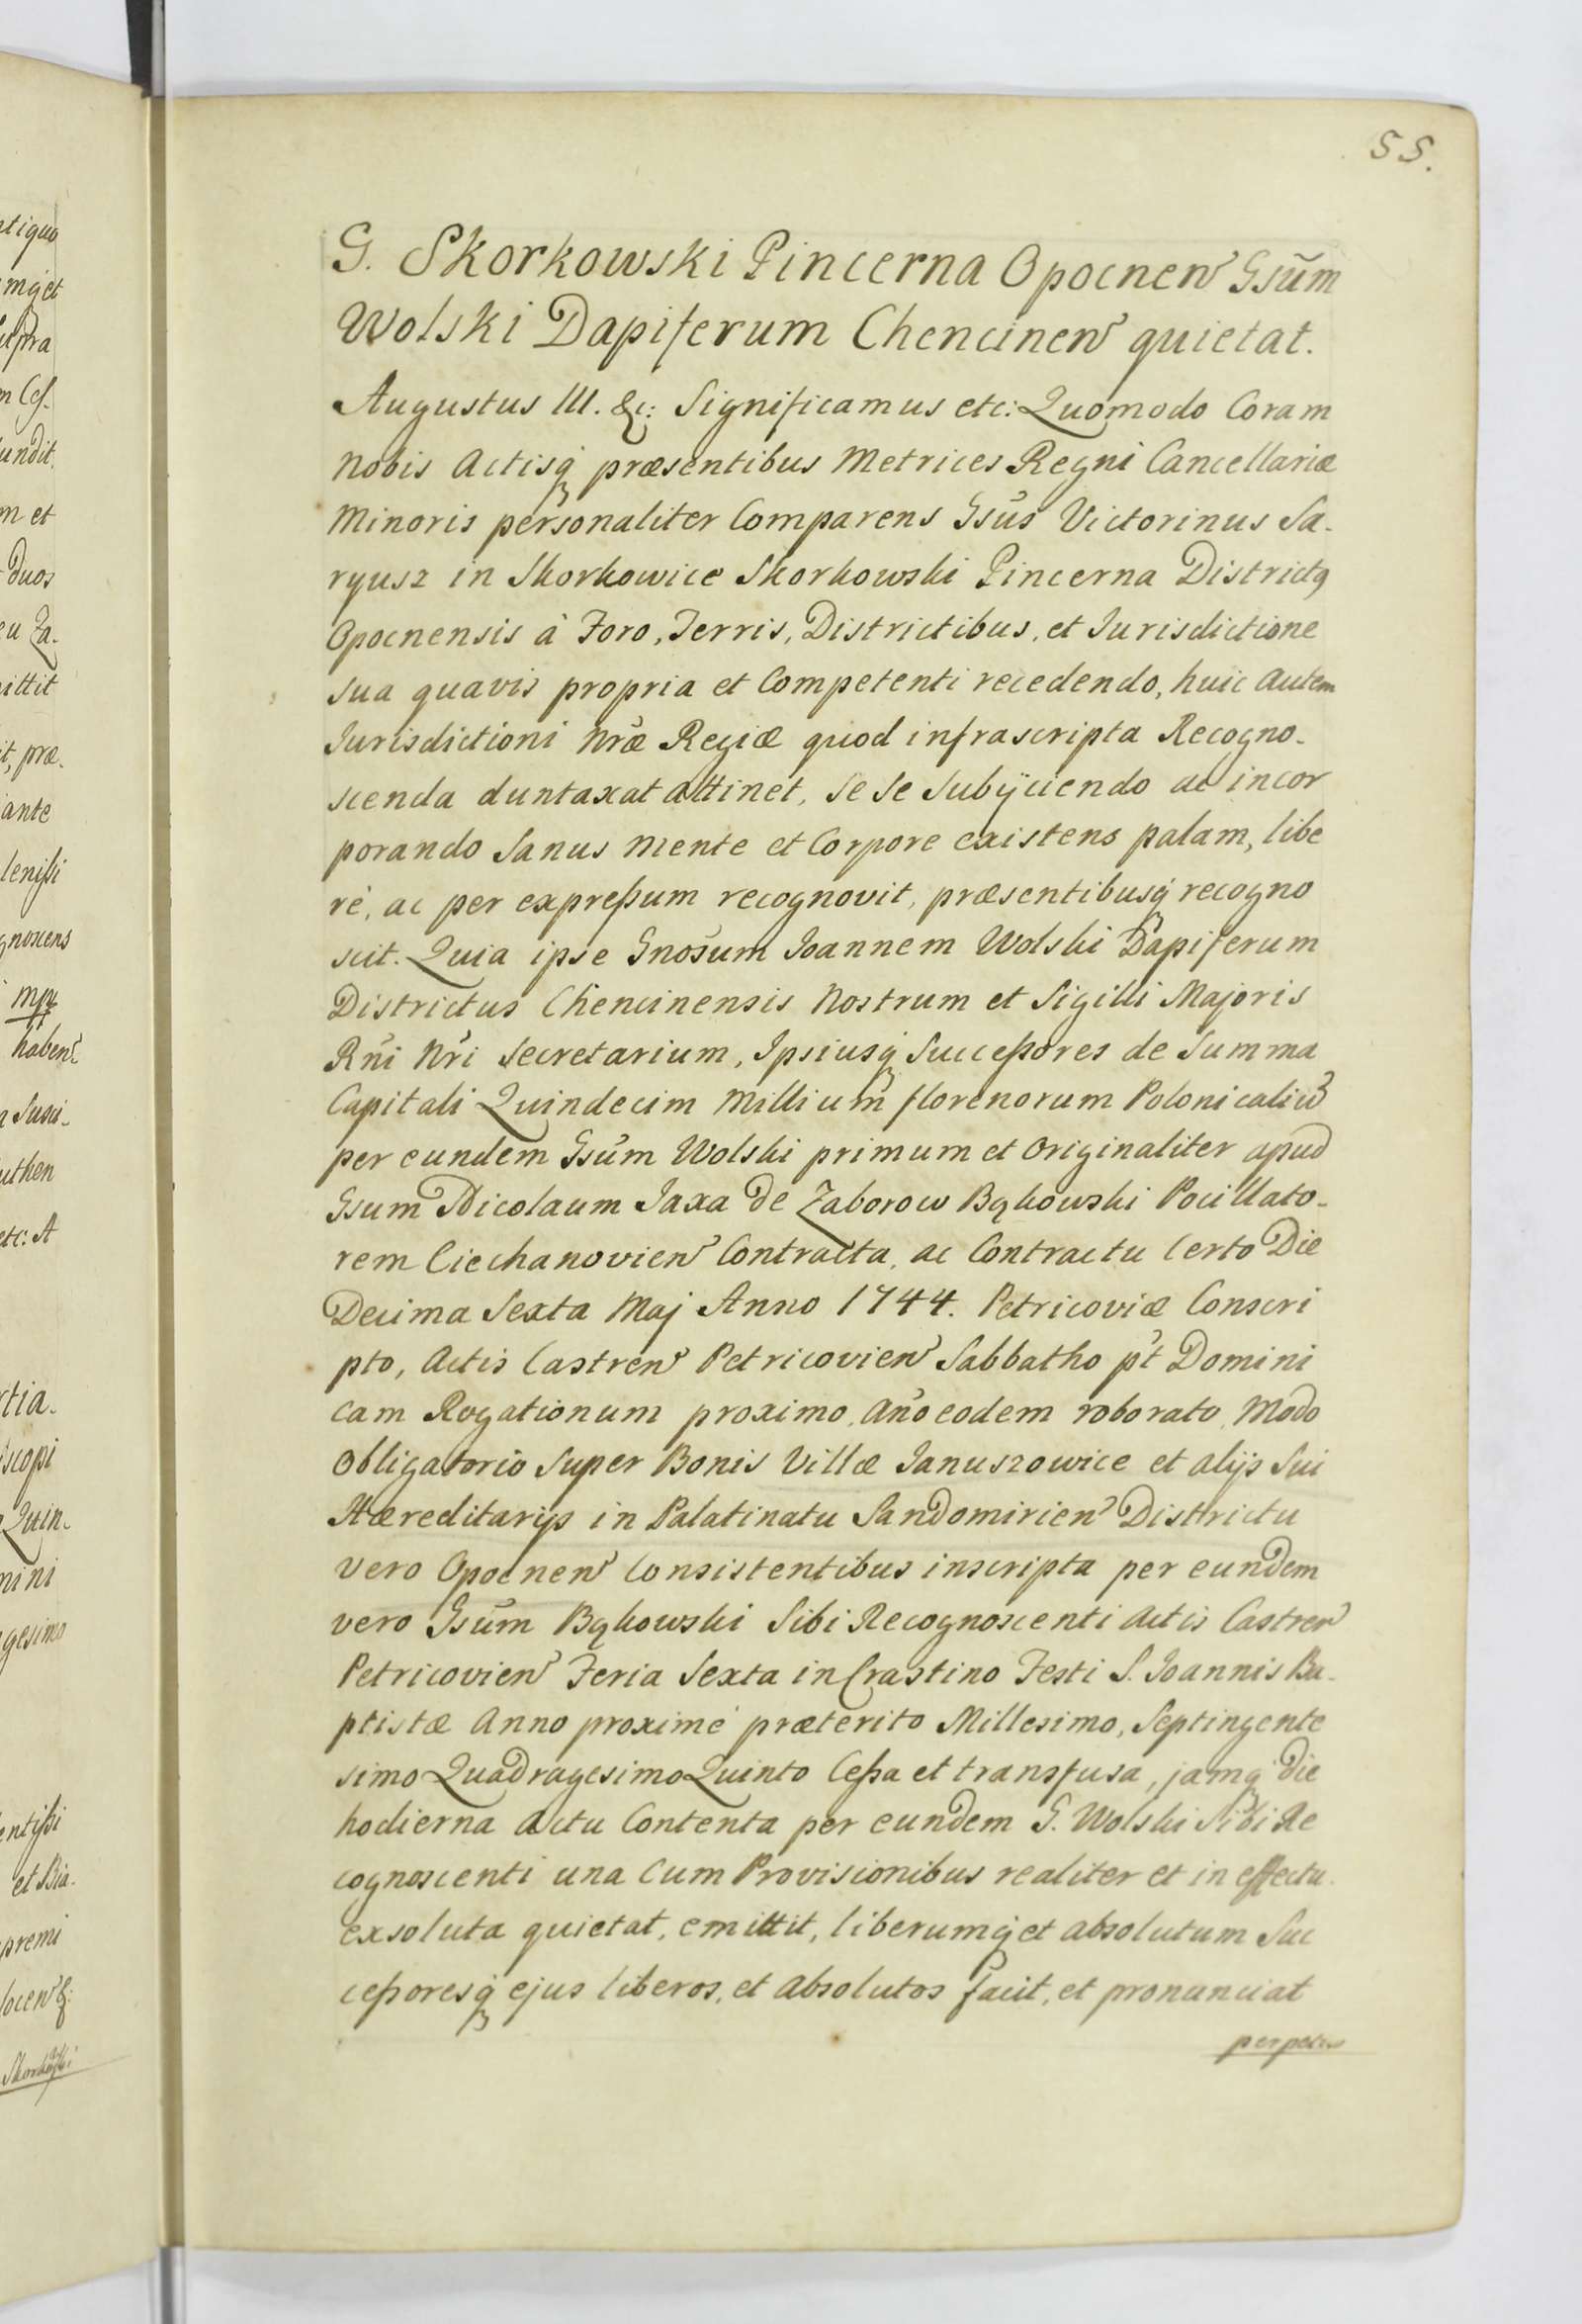 55.
G. Skorkowski Pincerna Opocnen̄ Gsūm
Wolski Dapiferum Chencinen̄ quietat.
Augustus III. &c: Significamus etc: Quomodo Coram
Nobis Actisq̨ præsentibus Metrices Regni Cancellariæ
Minoris personaliter Comparens Gsūs Victorinus Sa-
ryusz in Skorkowice Skorkowski Pincerna Districtq
Opocnensis à Foro, Terris, Districtibus, et Iurisdictione
sua quavis propria et Competenti recedendo, huic autem
Iurisdictioni Nrāe Regiæ quod infrascripta Recogno-
scenda duntaxat attinet, se se subijciendo ac incor
porando Sanus mente et Corpore existens palam, libe
rè, ac per expreßum recognovit, præsentibusq̨ recogno
scit. Quia ipse Gnosūm Ioannem Wolski Dapiferum
Districtus Chencinensis Nostrum et Sigilli Majoris
Rn̄i Nr̄i Secretarium, Ipsiusq̨ Succeßores de Summa
Capitali Quindecim Millium florenorum Polonicaliū
per eundem Gsūm Wolski primum et Originaliter apud
Gsum Nicolaum Jaxa de Zaborow Bąkowski Pocillato-
rem Ciechanovien̄ Contracta, ac Contractu Certo Die
Decima Sexta Maj Anno 1744. Petricoviæ Conscri
pto, Actis Castren̄ Petricovien̄ Sabbatho pt̄ Domini
cam Rogationum proximo, Anōo eodem roborato, Modo
Obligatorio super Bonis Villæ Januszowice et alijs sui
Hæreditarijs in Palatinatu Sandomirien̄ Districtu
vero Opocnen̄ Consistentibus inscripta per eundem
vero Gsūm Bąkowski Sibi Recognoscenti Actis Castren̄
Petricovien̄ Feria Sexta in Crastino Festi S. Ioannis Ba-
ptistæ Anno proximè præterito Millesimo, Septingente
simo Quadragesimo Quinto Ceßa et transfusa, jamq̨ die
hodierna Actu Contenta per eundem G. Wolski Sibi Re
cognoscenti una Cum Provisionibus realiter et in effectu
exsoluta quietat, emittit, liberumq̨ et absolutum Suc
ceßoresq̨ ejus liberos, et absolutos facit, et pronunciat